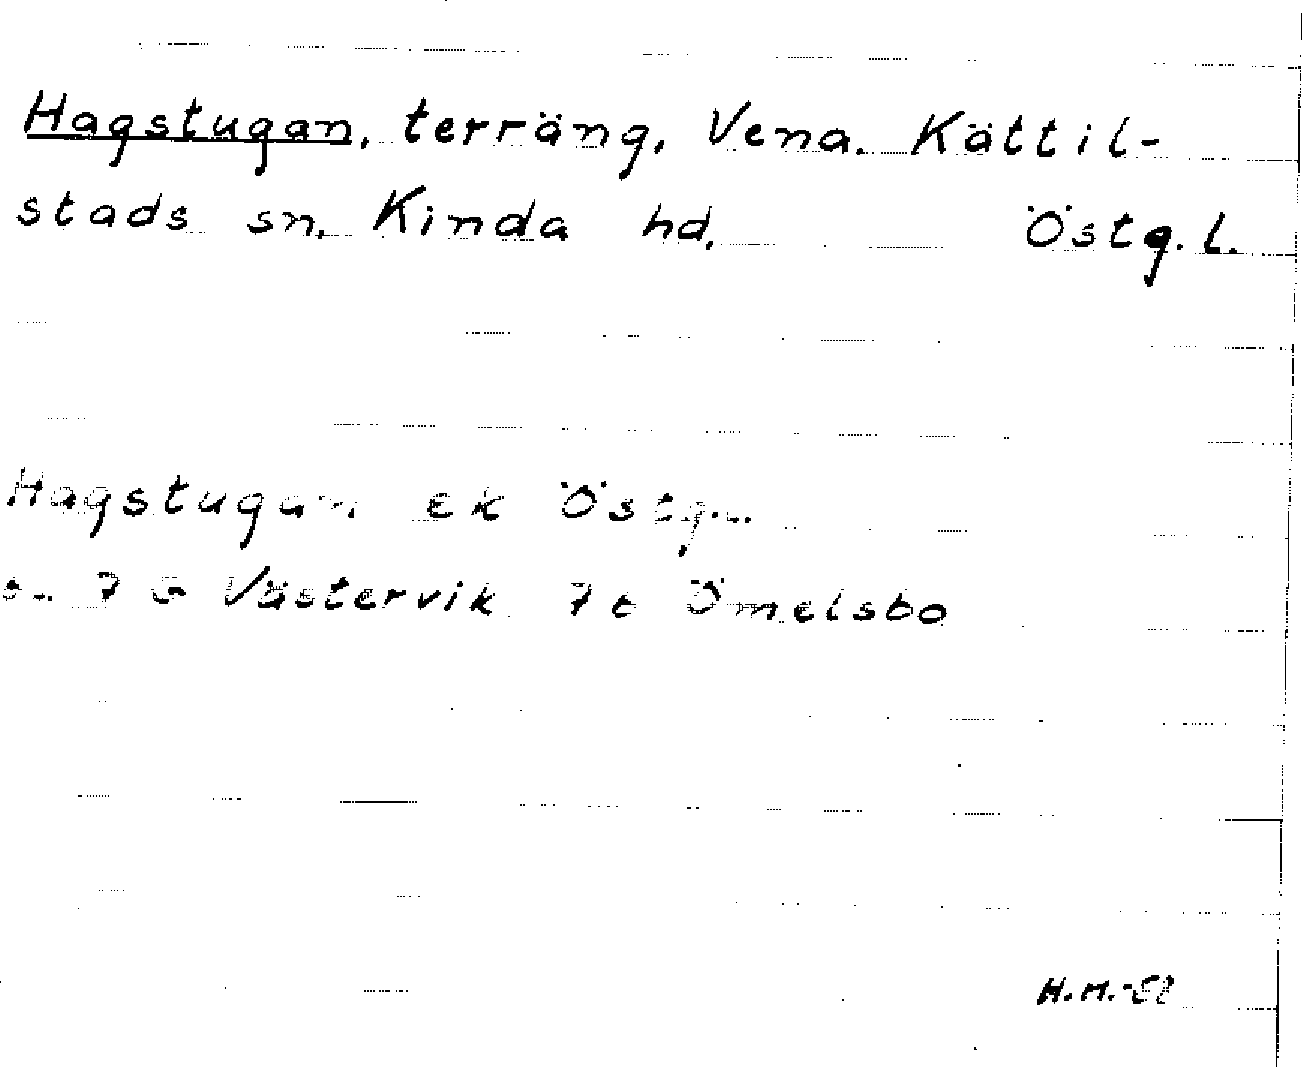 Hagstugan, terräng, Vena. Kättil-
stads sn. Kinda hd. Östg. l.
Hagstugan ek Östg.
7 G Västervik 7 c Ömelsbo
H.M.-52